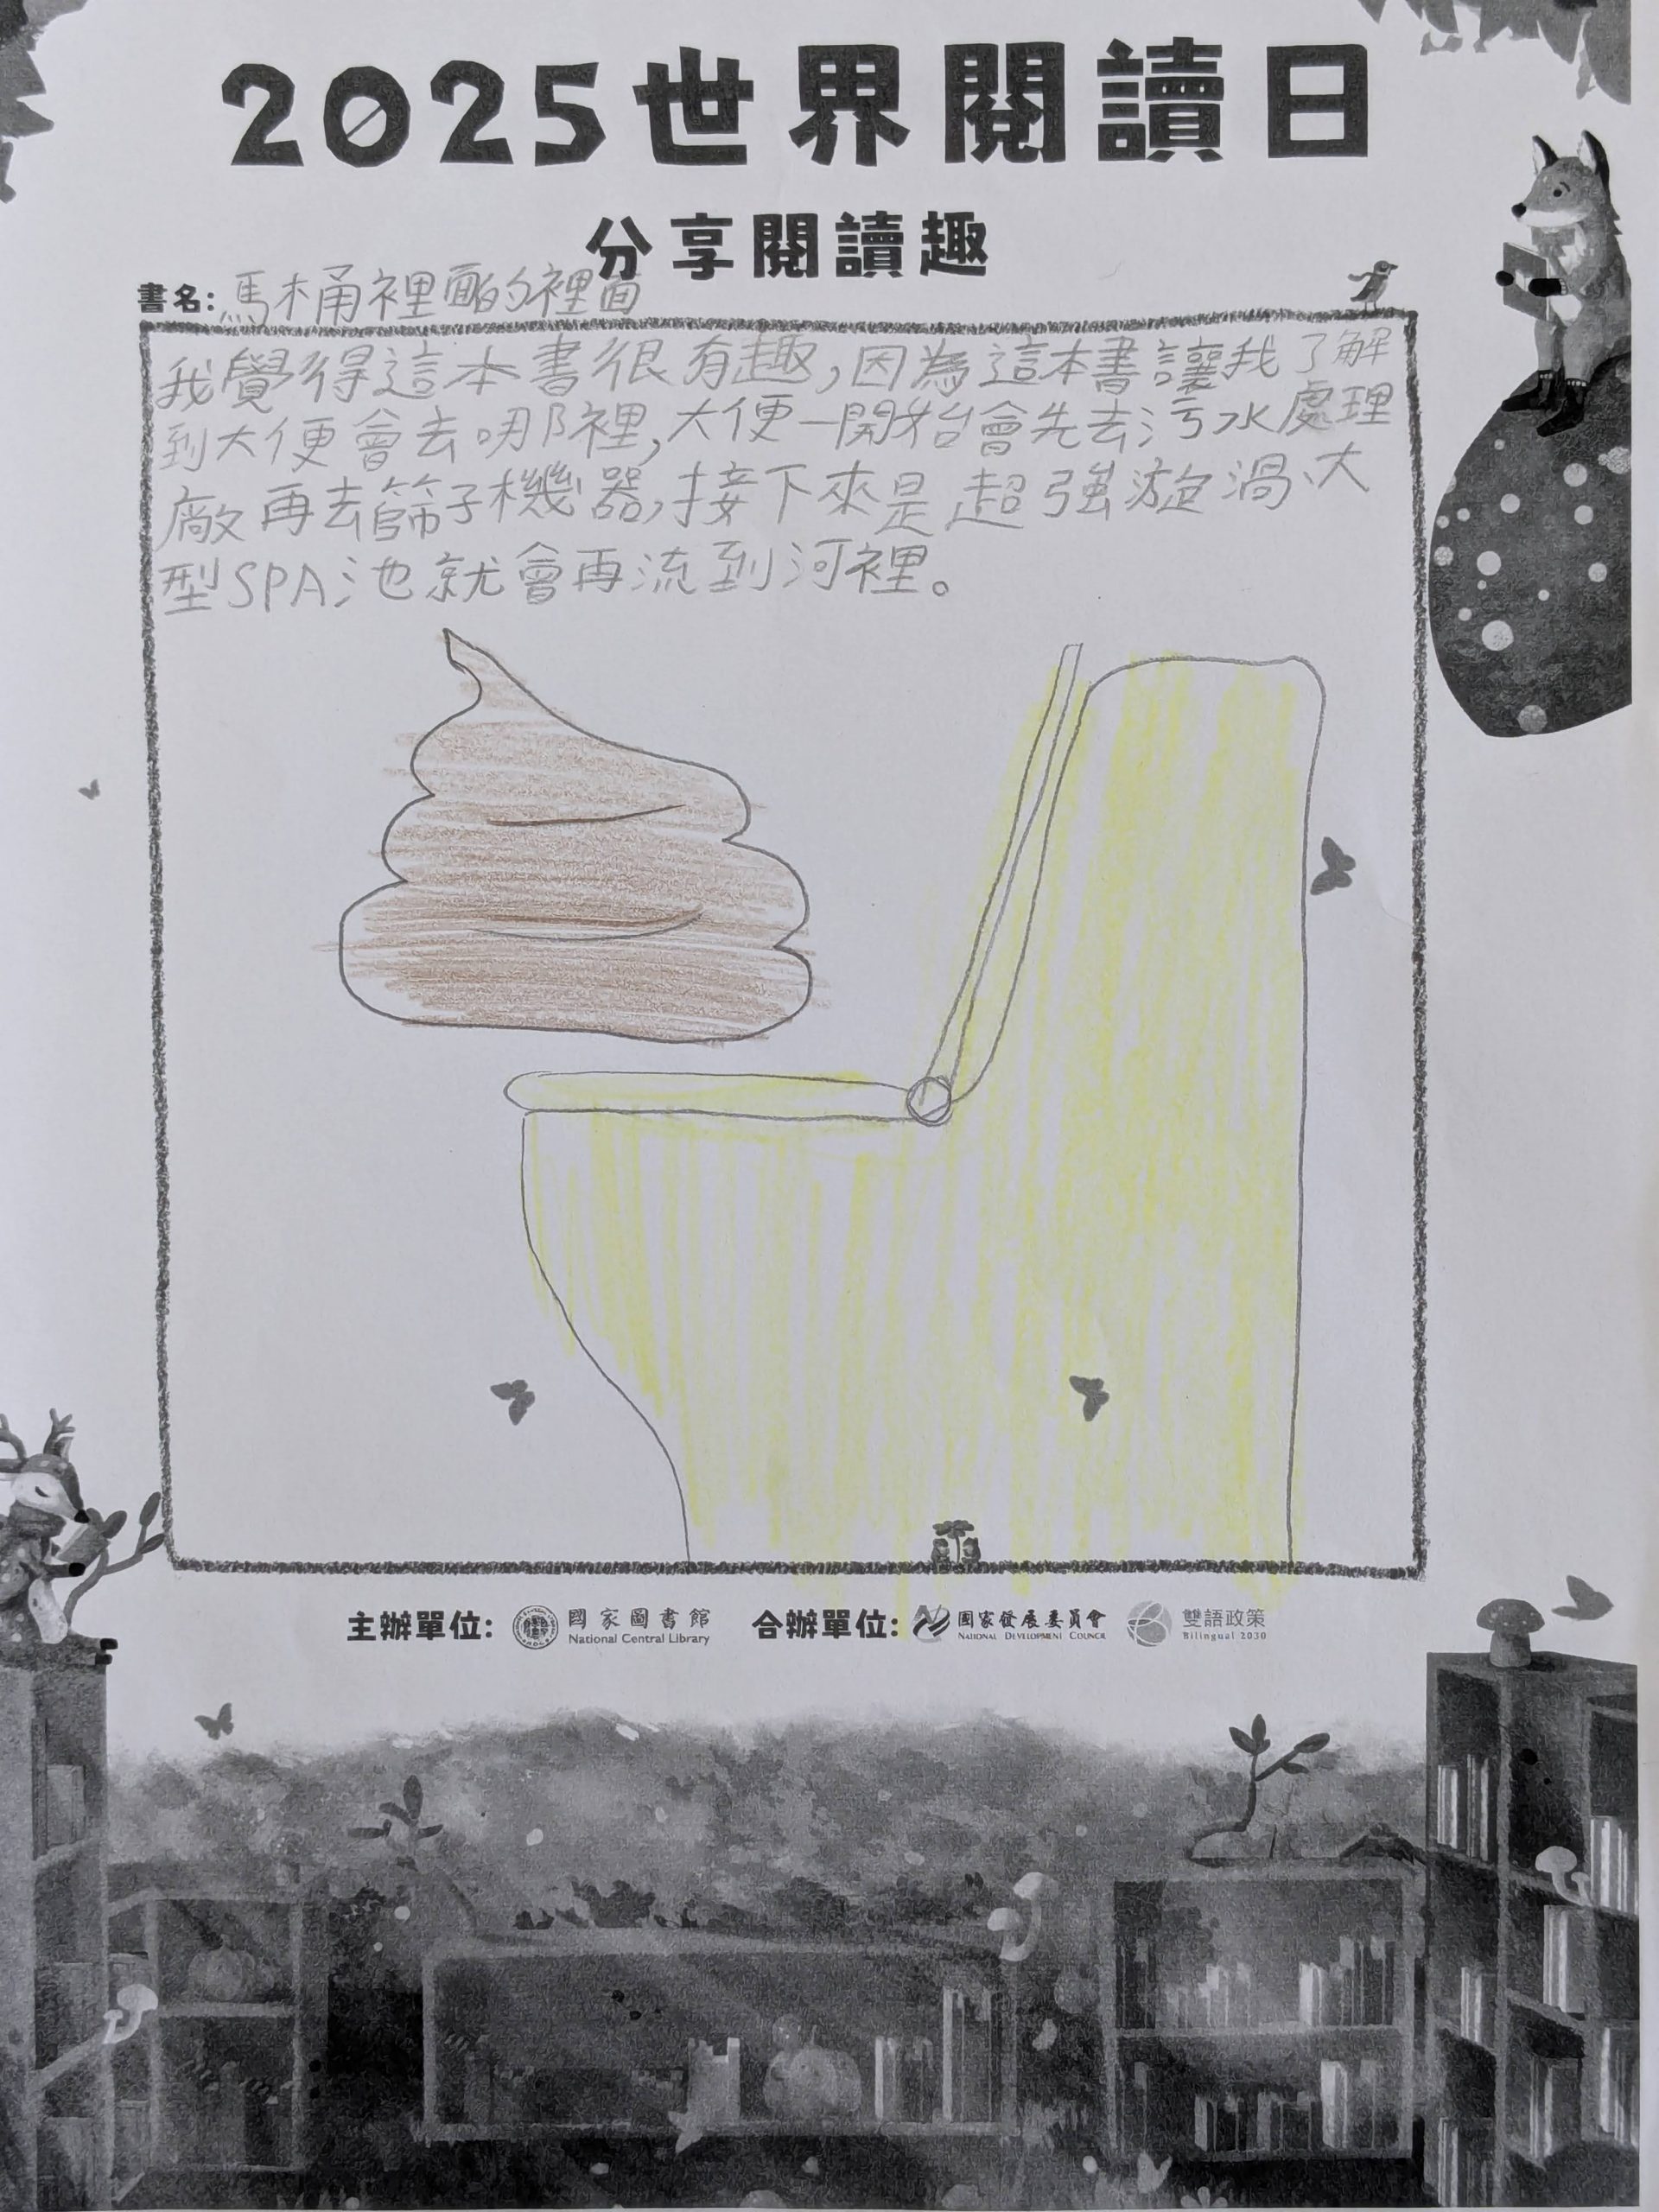 2025世界閱讀日
分享閱讀趣
書名:馬桶裡面的裡面
我覺得這本書很有趣,因為這本書讓我了解
到大便會去哪裡,大便一開始會先去污水處理
廠再去篩子機器,接下來是超強漩渦、大
型SPA池就會再流到河裡。
主辦單位: 國家圖書館 National Central Library 合辦單位: 國家發展委員會 NATIONAL DEVELOPMENT COUNCIL 雙語政策 Bilingual 2030